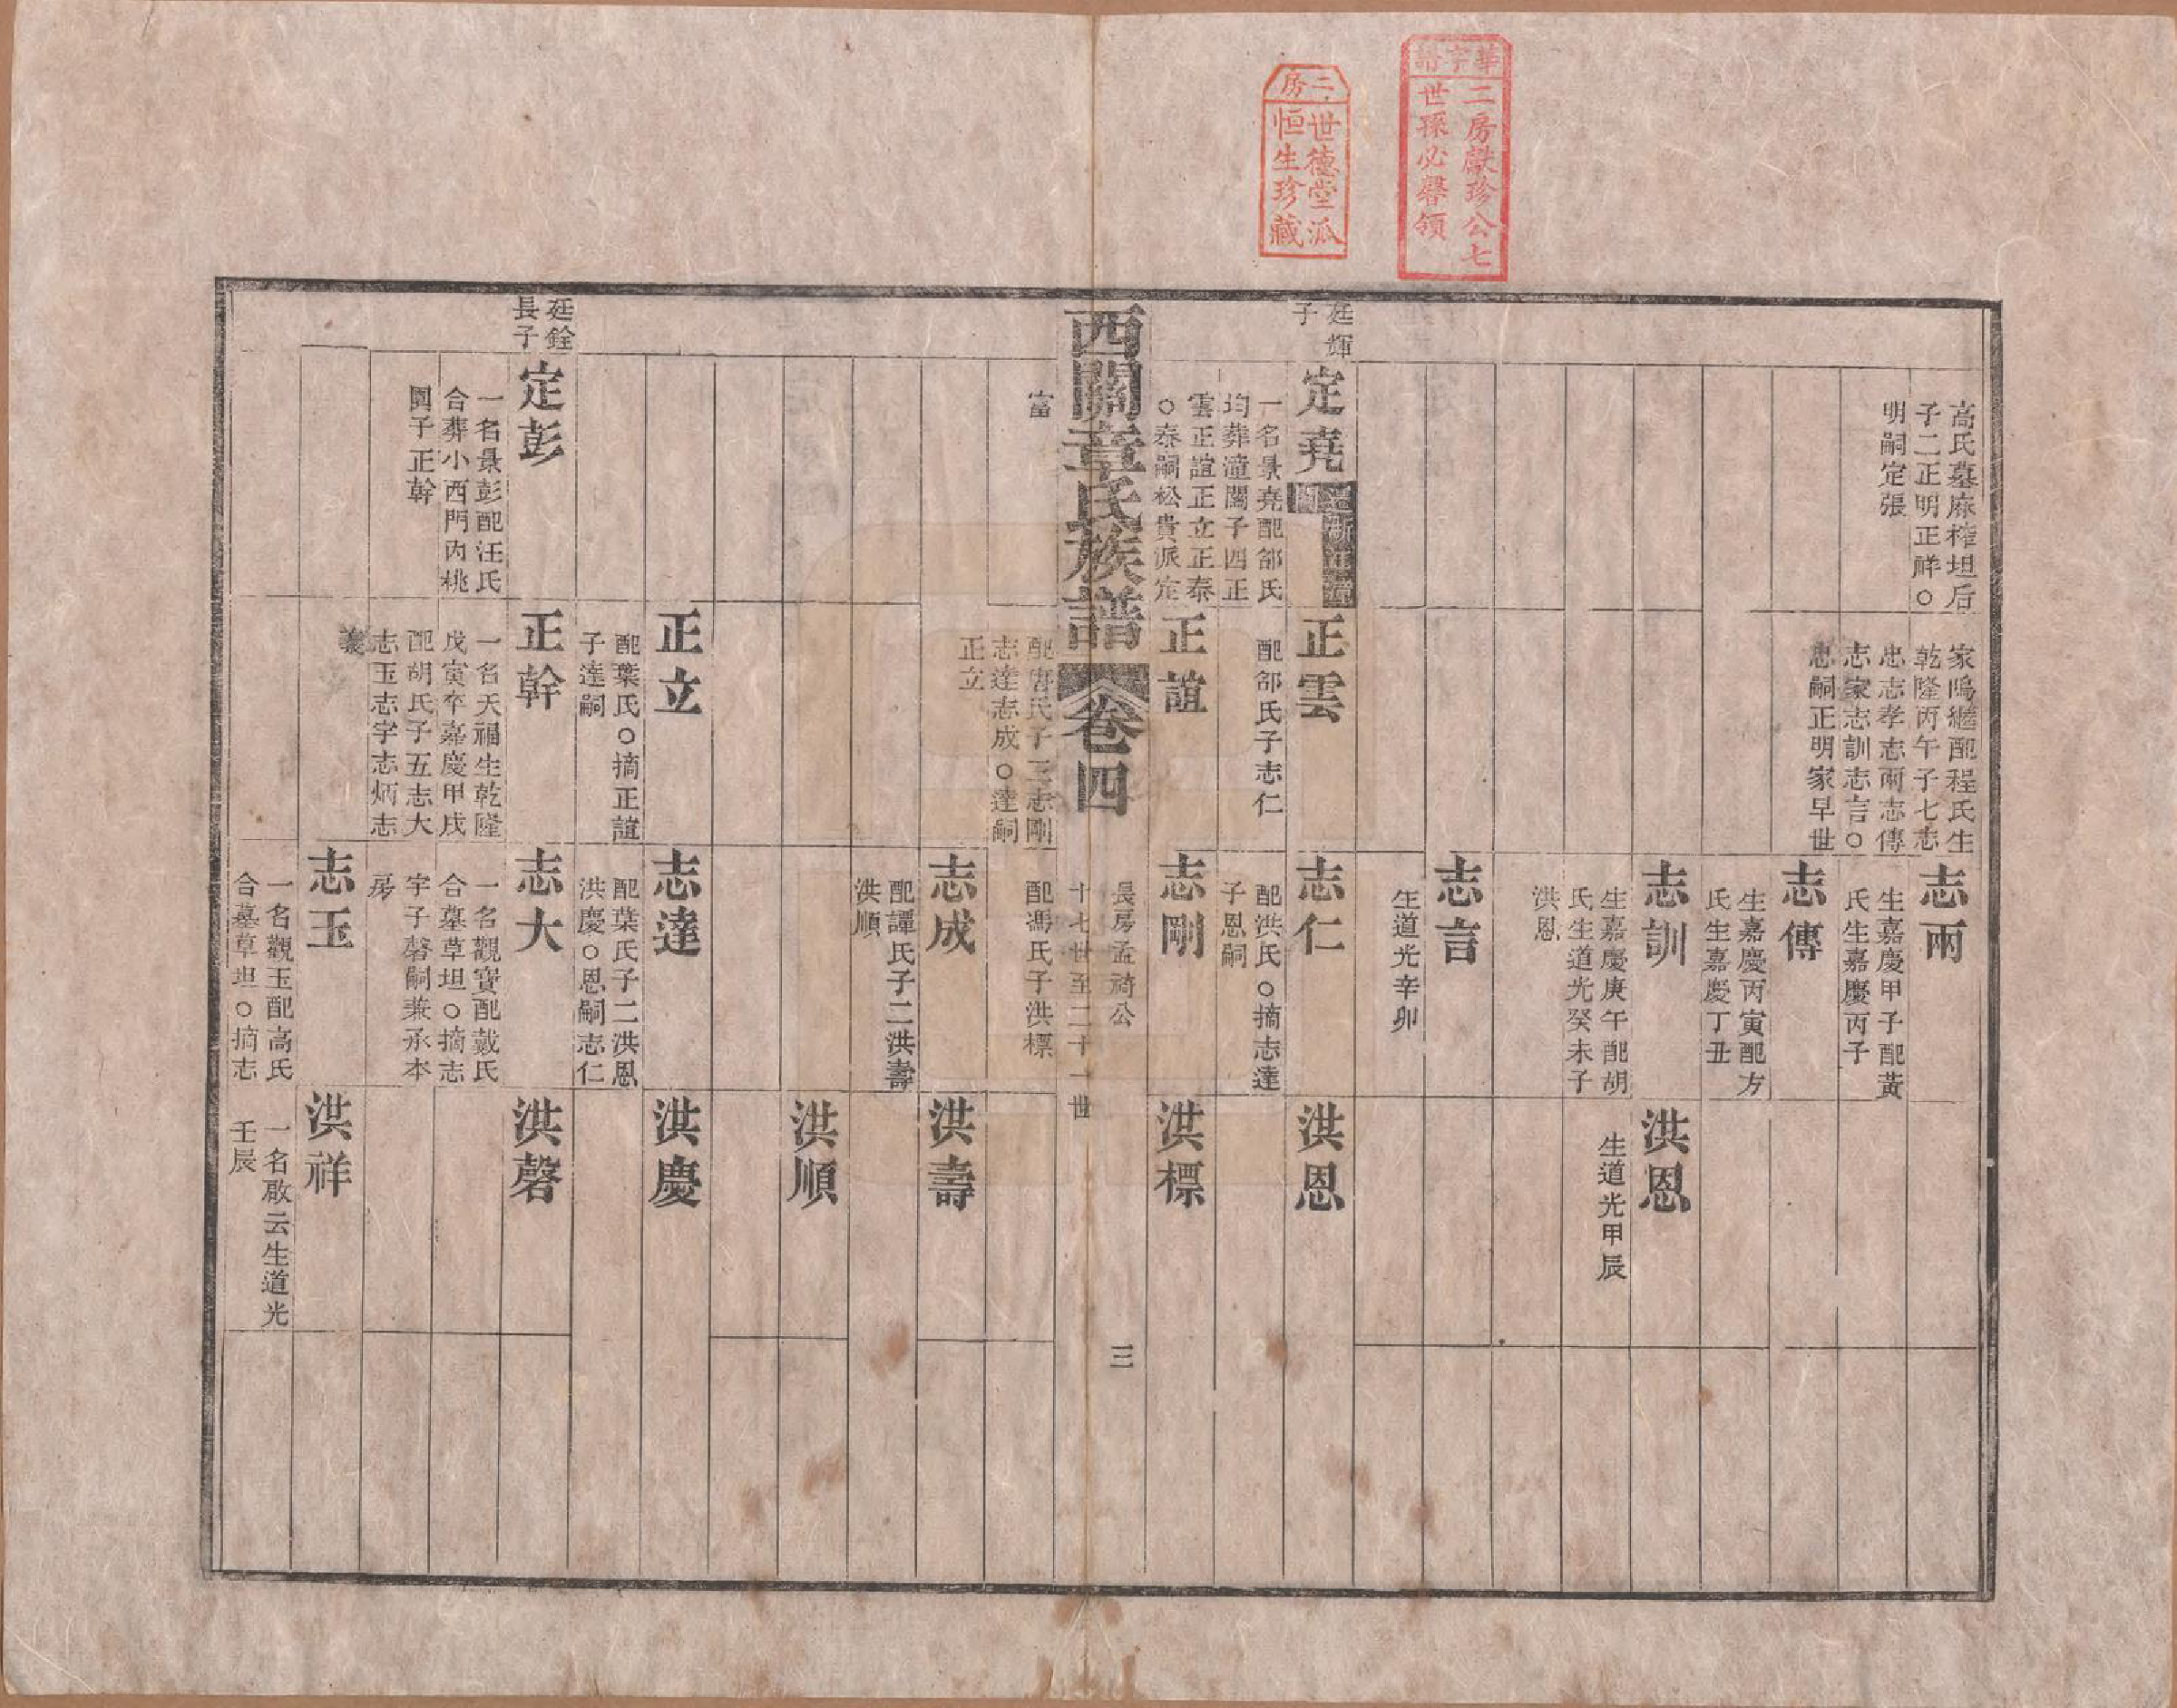 華字譜
二房獻珍公七
世孫必馨領
二房
世德堂派
恒生珍藏
高氏墓麻榨坦后
子二正明正祥○
明嗣定張
家塢繼配程氏生
乾隆丙午子七志
忠志孝志兩志傳
志家志訓志言○
忠嗣正明家早世
志兩
生嘉慶甲子配黃
氏生嘉慶丙子
志傳
生嘉慶丙寅配方
氏生嘉慶丁丑
志訓
生嘉慶庚午配胡
氏生道光癸未子
洪恩
洪恩
生道光甲辰
志言
生道光辛卯
廷輝
子
定堯
一名景堯配郤氏
均葬潼關子四正
雲正誼正立正泰
○泰嗣松貴派定
富
正雲
配郤氏子志仁
志仁
配洪氏○摘志達
子恩嗣
洪恩
正誼
配唐氏子三志剛
志達志成○達嗣
正立
志剛
配馮氏子洪標
洪標
西關章氏族譜
卷四
長房孟綺公
十七世至二十一世
三
志成
配譚氏子二洪壽
洪順
洪壽
洪順
正立
配葉氏○摘正誼
子達嗣
志達
配葉氏子二洪恩
洪慶○恩嗣志仁
洪慶
廷銓
長子
定彭
一名景彭配汪氏
合葬小西門内桃
園子正幹
正幹
一名天福生乾隆
戊寅卒嘉慶甲戌
配胡氏子五志大
志玉志字志炳志
義
志大
一名觀寶配戴氏
合墓草坦○摘志
宇子磬嗣兼承本
房
洪磬
志玉
一名觀玉配高氏
合墓草坦○摘志
洪祥
一名啟云生道光
壬辰